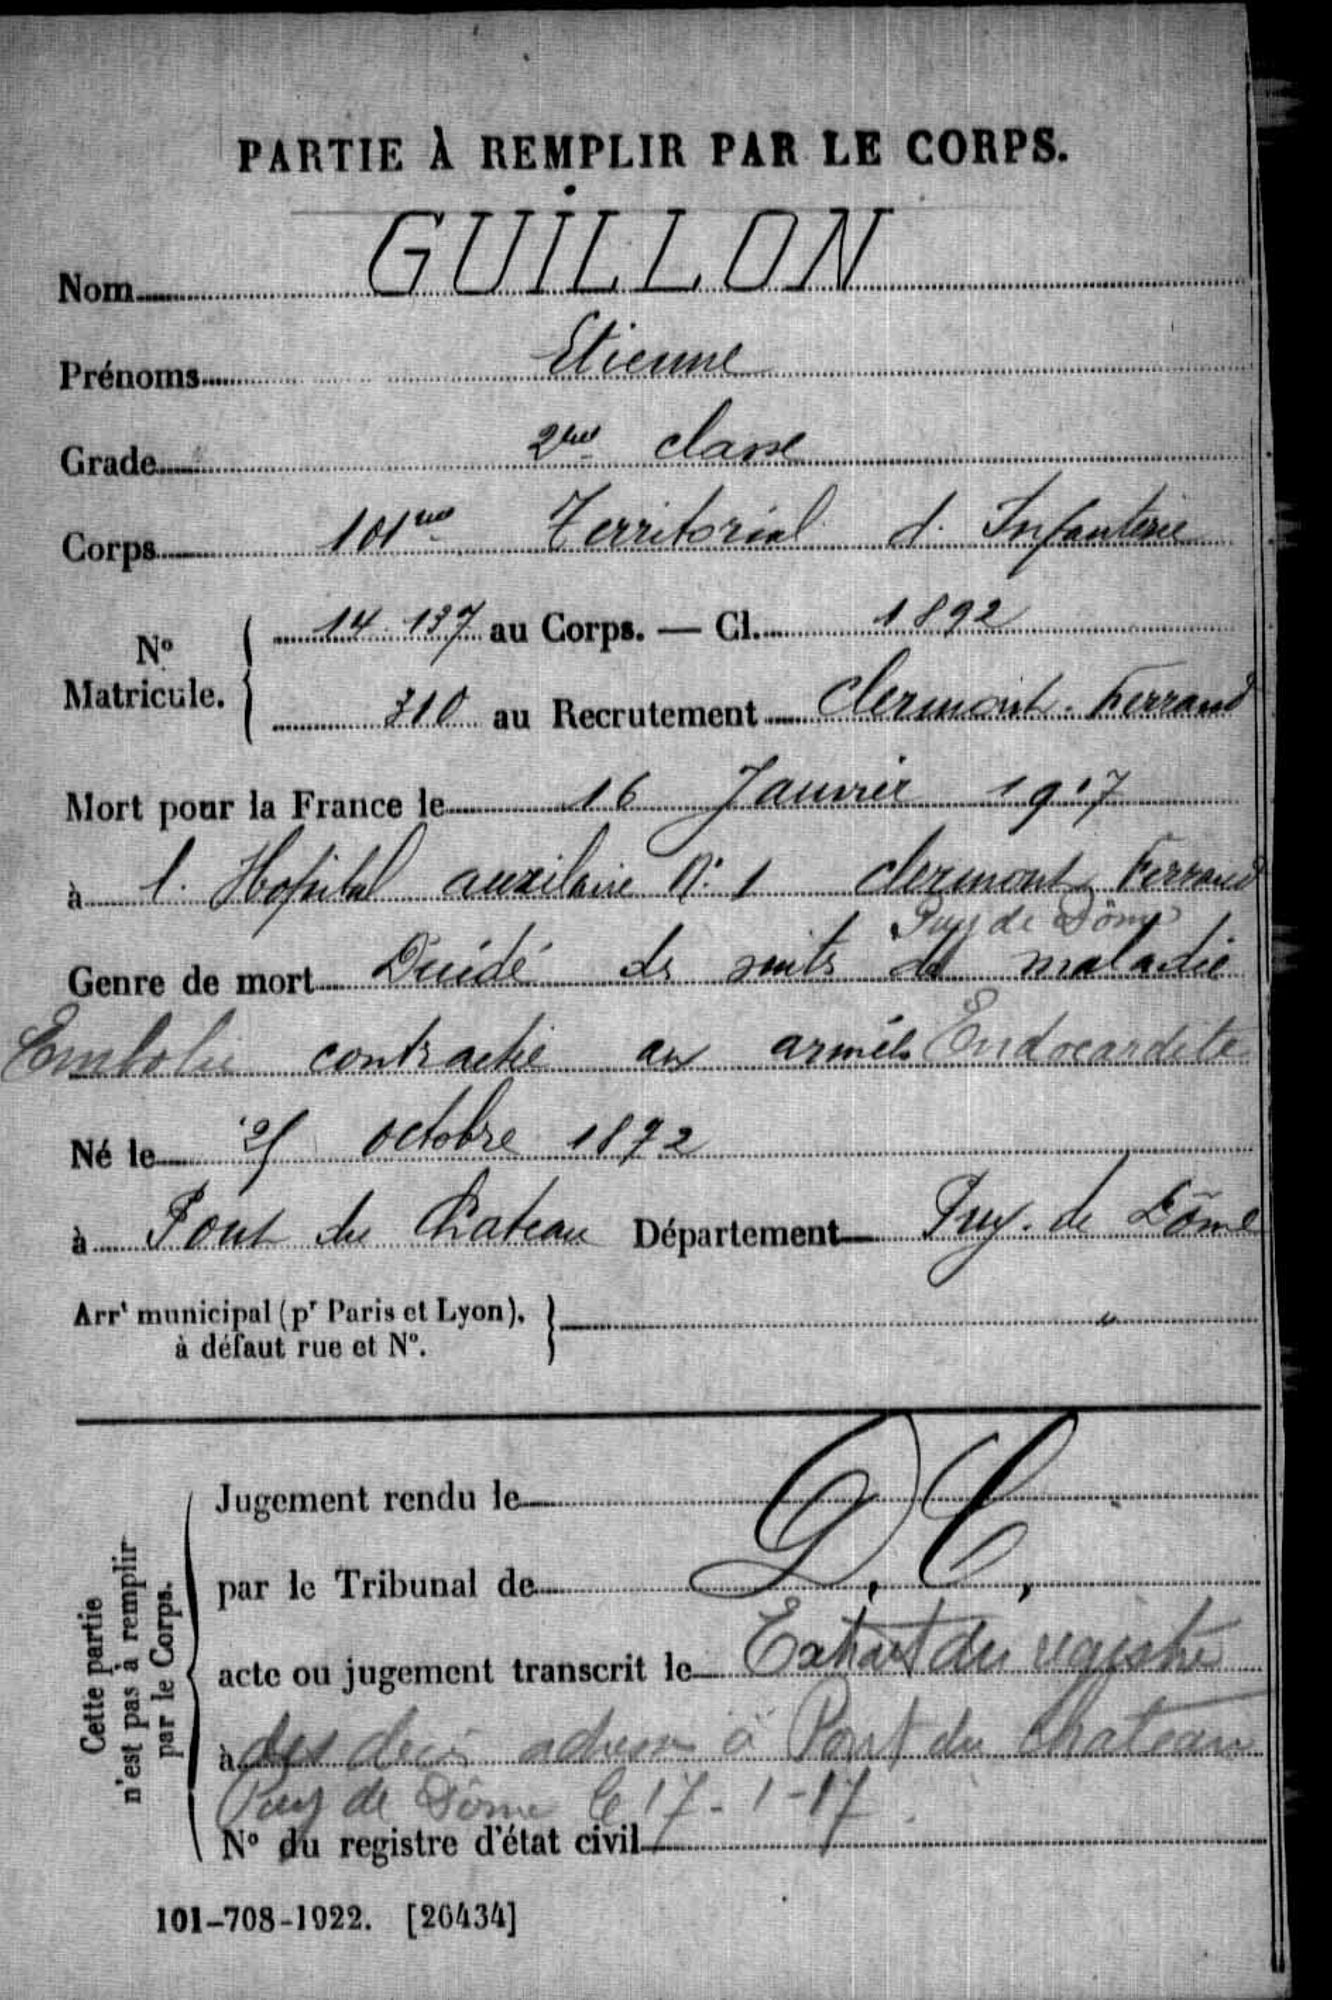 PARTIE À REMPLIR PAR LE CORPS.
GUILLON
Nom
Prénoms Etienne
Grade 2eme classe
Corps 101me Territorial d. Infanterie
N° Matricule. 14 137 au Corps. — Cl. 1892
310 au Recrutement Clermont-Ferrand
Mort pour la France le 16 Janvier 1917
à l. Hopital auxilaire N° 1 clermont Ferrand
Puy de Dôme
Genre de mort Décidé de suite de maladie
Embolie contractée aux armées Endocardite
Né le octobre 1872
à Pont du Chateau Département Puy. de Dôme
Arrt municipal (pr Paris et Lyon), "
à défaut rue et N°.
Cette partie n'est pas à remplir par le Corps.
Jugement rendu le
par le Tribunal de D. C.
acte ou jugement transcrit le Extrait du registre
à des décès adressé à Pont du Chateau
Puy de Dôme le 17-1-17
N° du registre d'état civil
101-708-1922. [26434]